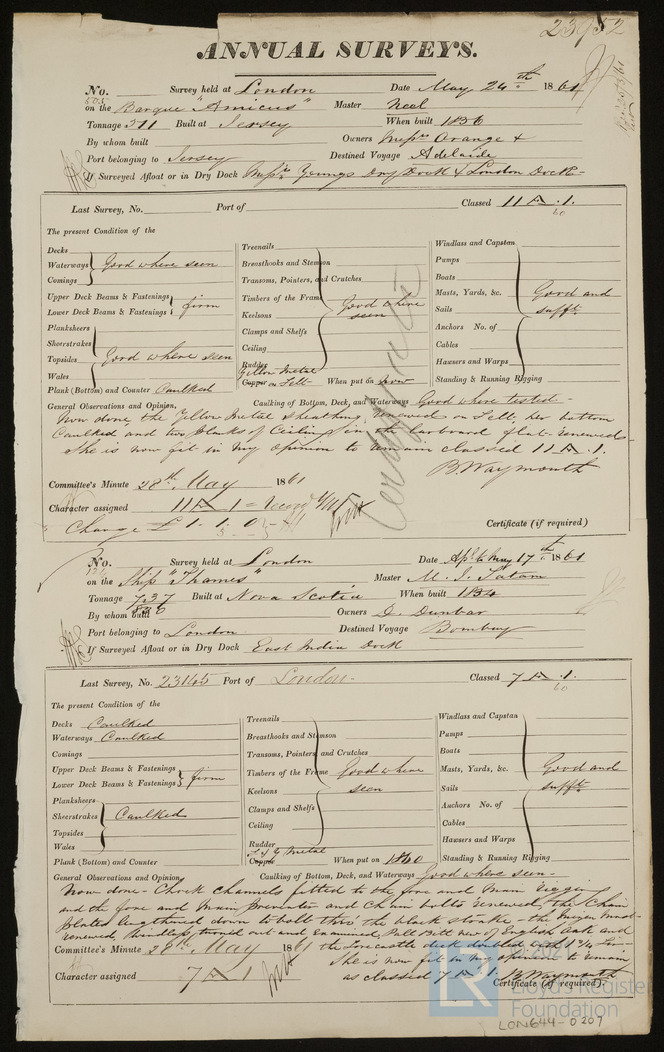 23952
ANNUAL SURVEYS.
No. 501 Survey held at London Date May 24th 1861
on the Barque "Amicus" Master Neel
Tonnage 311 Built at Jersey When built 1856
By whom built Owners Messrs Orange &
Port belonging to Jersey Destined Voyage Adelaide
If Surveyed Afloat or in Dry Dock Messrs Youngs Dry Dock & London Dock
Last Survey, No. Port of Classed 11 A 1.
60
The present Condition of the
Decks
Waterways Good where seen
Comings
Upper Deck Beams & Fastenings
Lower Deck Beams & Fastenings firm
Planksheers
Sheerstrakes
Topsides Good where seen
Wales
Plank (Bottom) and Counter Caulked
Treenails
Breasthooks and Stemson
Transoms, Pointers, and Crutches
Timbers of the Frame Good where
Keelsons seen
Clamps and Shelfs
Ceiling
Rudder
Yellow Metal
Copper on Felt When put on now
Windlass and Capstan
Pumps
Boats
Masts, Yards, &c. Good and
Sails sufft
Anchors No. of
Cables
Hawsers and Warps
Standing & Running Rigging
Caulking of Bottom, Deck, and Waterways Good where tested
General Observations and Opinion,
Now done the Yellow Metal Sheathing renewed on Felt, her bottom
Caulked and two planks of Ceiling in the larboard flat renewed
She is now fit in my opinion to remain classed 11 A 1.
B Waymouth
Committee's Minute 28th May 1861
Character assigned 11 A 1
Charge £ 1. 1. 0
Certificate (if required)
No. Survey held at London Date Apl 6 May 17th 1861
on the Ship "Thames" Master M. J. Tatam
Tonnage 737 Built at Nova Scotia When built 1854
826
By whom built Owners D. Dunbar
Port belonging to London Destined Voyage Bombay
If Surveyed Afloat or in Dry Dock East India Dock
Last Survey, No. 23145 Port of London Classed 7 A 1.
60
The present Condition of the
Decks Caulked
Waterways Caulked
Comings
Upper Deck Beams & Fastenings
Lower Deck Beams & Fastenings firm
Planksheers
Sheerstrakes Caulked
Topsides
Wales
Plank (Bottom) and Counter
Treenails
Breasthooks and Stemson
Transoms, Pointers, and Crutches
Timbers of the Frame Good where
Keelsons seen
Clamps and Shelfs
Ceiling
Rudder
Metal
Copper When put on 1860
Windlass and Capstan
Pumps
Boats
Masts, Yards, &c. Good and
Sails sufft
Anchors No. of
Cables
Hawsers and Warps
Standing & Running Rigging
Caulking of Bottom, Deck, and Waterways Good where seen
General Observations and Opinion,
Now done - Chock channels fitted to the fore and Main rigging
and the fore and main preventer and Chain bolts renewed, the Chain
plates lengthened down to bolt thro' the black strake - the mizen mast
renewed, windlass turned out and examined, Pall Bitt new of English Oak and
the Forecastle deck doubled with
Committee's Minute 28th May 1861
She is now fit in my opinion to remain
as classed 7 A 1. B Waymouth
Character assigned 7 A 1
Certificate (if required)
© 2021
LR Lloyd's Register
Foundation
LON644-0207